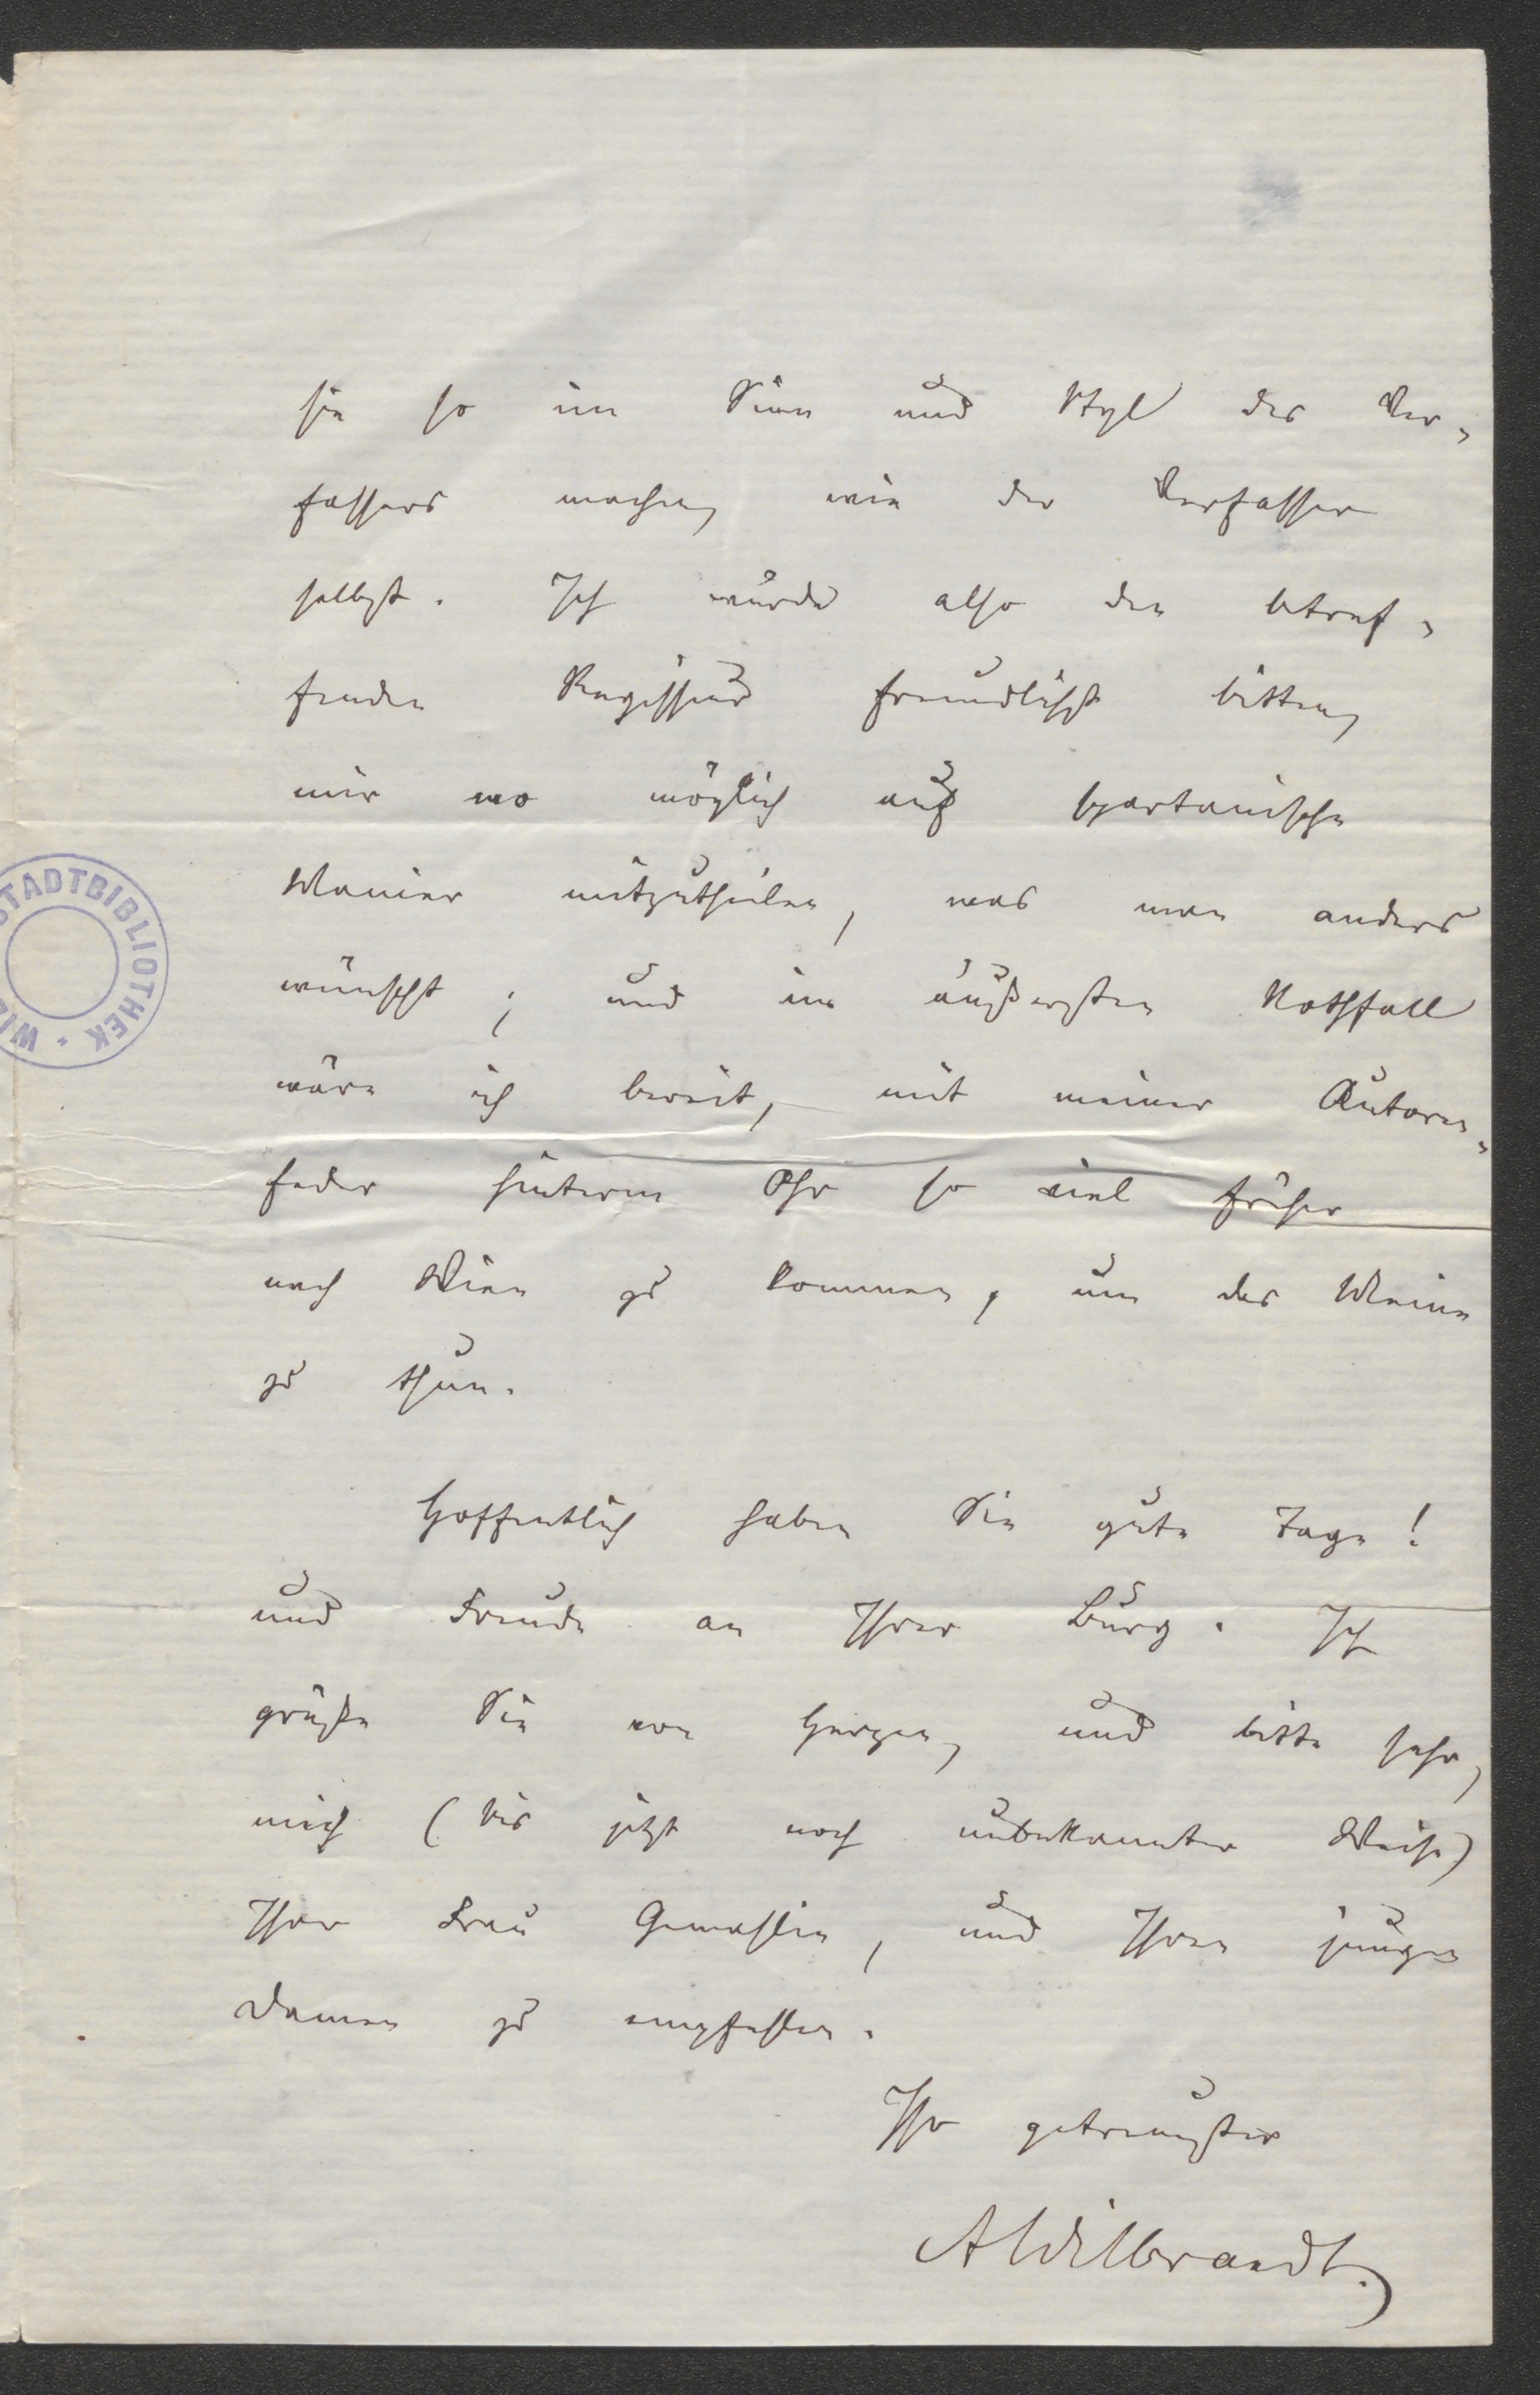 sie so im Sinn und Styl des Ver-
fassers machen, wie der Verfasser
selbst. Ich würde also den betref-
fenden Regisseur freundlichst bitten,
mir wo möglich auf spartanische
Manier mitzutheilen, was man anders
wünscht; und im äußersten Nothfall
wäre ich bereit, mit meiner Autoren-
feder hinterm Ohr so viel früher
nach Wien zu kommen, um das Meine
zu thun.
Hoffentlich haben Sie gute Tage!
und Freude an Ihrer Burg. Ich
grüße Sie von Herzen, und bitte sehr,
mich (bis jetzt noch unbekannter Weise)
Ihrer Frau Gemahlin, und Ihren jungen
Damen zu empfehlen.
Ihr getreuester
AWilbrandt.
STADTBIBLIOTHEK * WIE